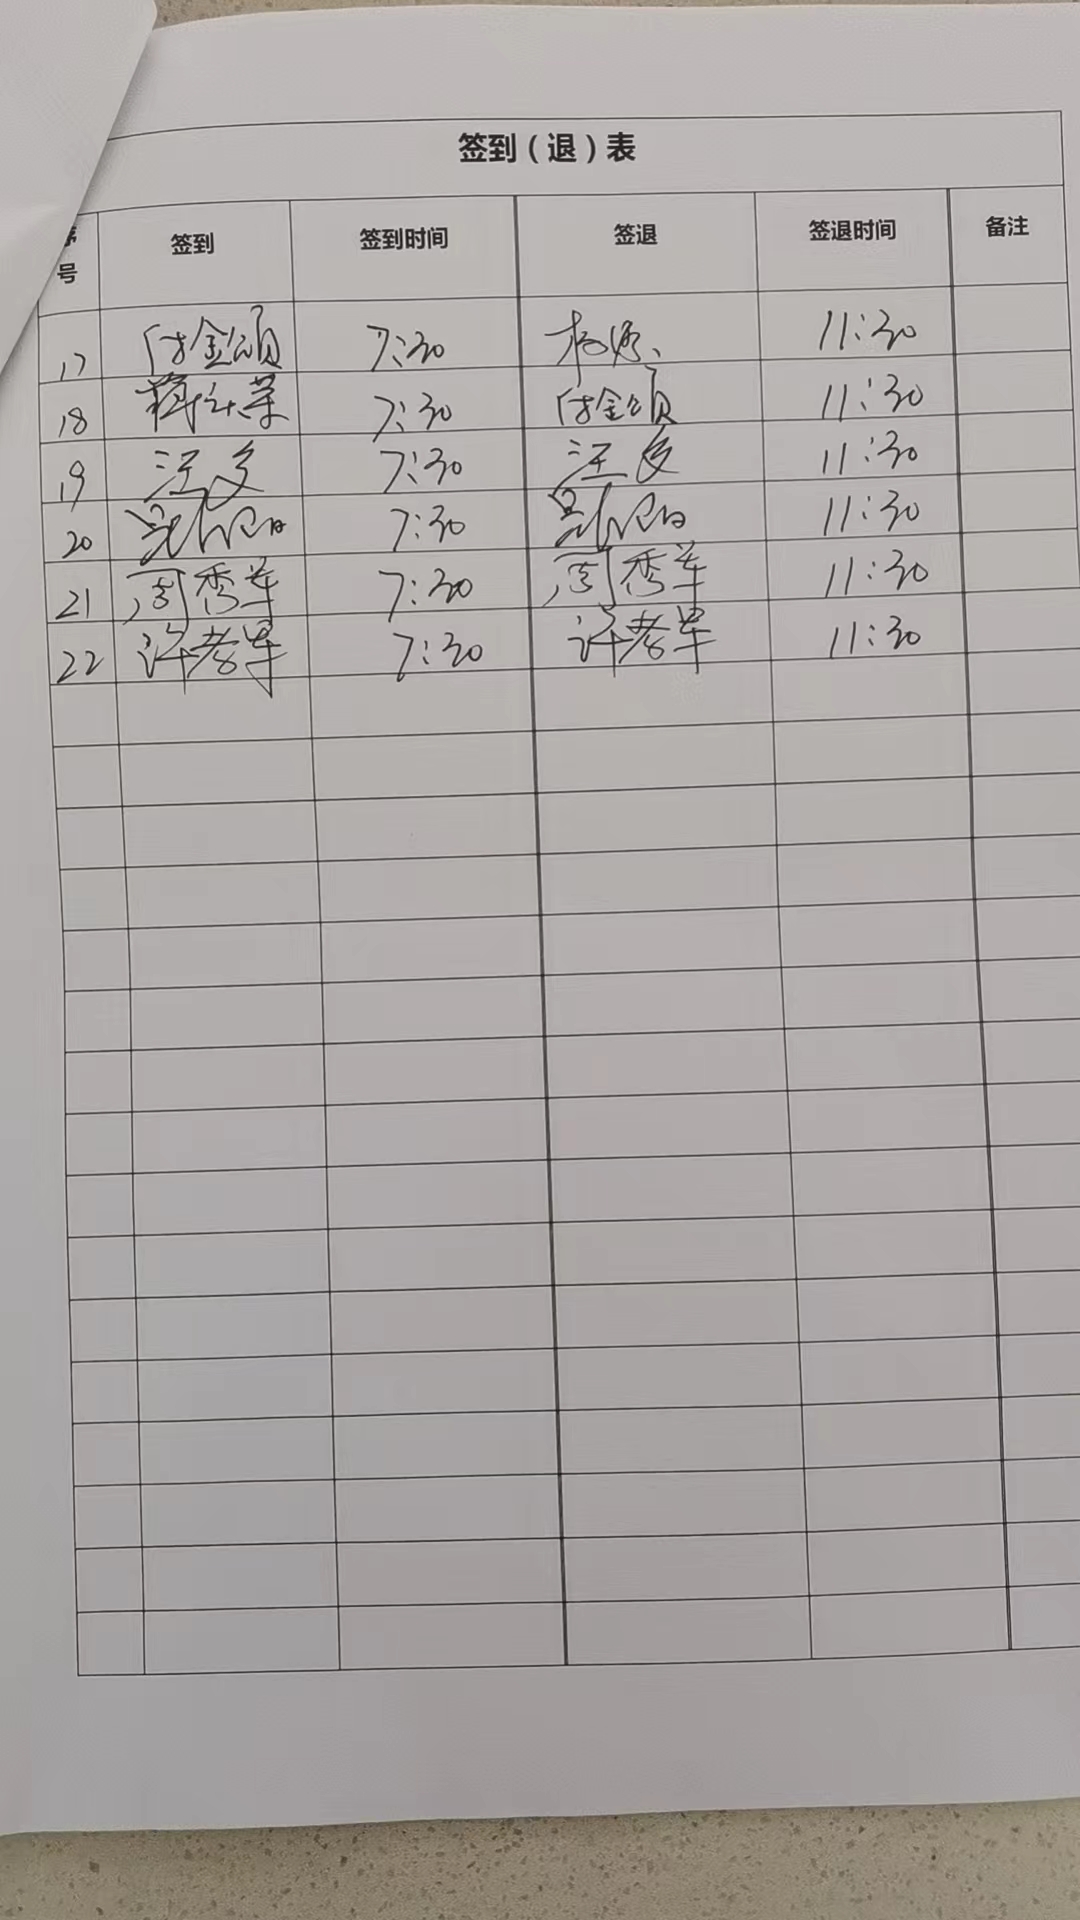 签到（退）表
序号 签到 签到时间 签退 签退时间 备注
17 付金颂 7:30 11:30
18 7:30 付金颂 11:30
19 汪多 7:30 汪多 11:30
20 7:30 11:30
21 周秀军 7:30 周秀军 11:30
22 许孝军 7:30 许孝军 11:30